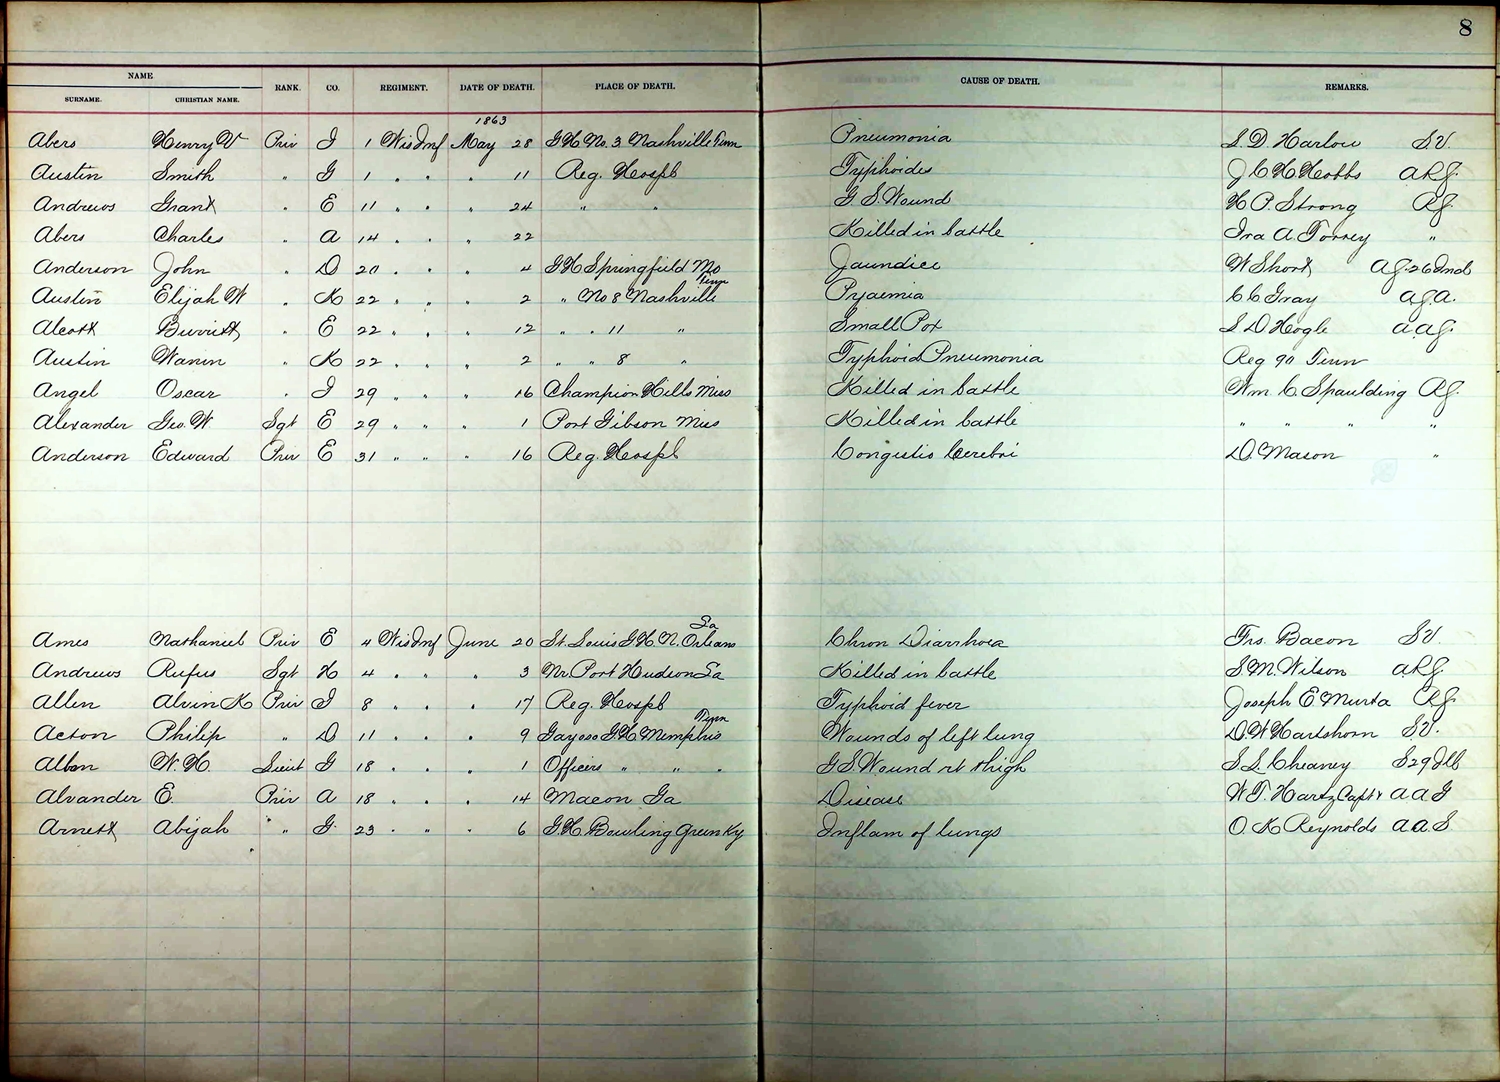 8
NAME
SURNAME. CHRISTIAN NAME. RANK. CO. REGIMENT. DATE OF DEATH. PLACE OF DEATH. CAUSE OF DEATH. REMARKS.
1863
Abers Henry V Priv I 1 Wis Inf May 28 G.H. No. 3 Nashville Tenn Pneumonia S. D. Harlow S.V.
Austin Smith " G 1 " " " 11 Reg. Hospl Typhoides J C H Hobbs A R J.
Andrews Grant " E 11 " " " 24 " " G. S. Wound H. P. Strong R J.
Abers Charles " A 14 " " " 22 Killed in battle Ira A. Torrey "
Anderson John " D 20 " " " 4 G H Springfield Mo Jaundice W Short A J. 26 Ind
Austin Elijah W " K 22 " " " 2 " No 8 Nashville Tenn Pyaemia C C Gray A J. A.
Alcott Burritt " E 22 " " " 12 " " 11 " Small Pox S D Hogle A A J.
Austin Wanin " K 22 " " " 2 " " 8 " Typhoid Pneumonia Reg 90 Tenn
Angel Oscar " I 29 " " " 16 Champion Hills Miss Killed in battle Wm C. Spaulding R J.
Alexander Geo. W. Sgt E 29 " " " 1 Port Gibson Miss Killed in battle " " " "
Anderson Edward Priv E 31 " " " 16 Reg. Hospl Congestio Cerebri D. Mason "
Ames Nathaniel Priv E 4 Wis Inf June 20 St. Louis G.H. N. Orleans La Chron Diarrhoea Frs. Bacon S.V.
Andrews Rufus Sgt H 4 " " " 3 Nr. Port Hudson La Killed in battle S. M. Wilson A R J.
Allen Alvin K Priv I 8 " " " 17 Reg. Hospl Typhoid fever Joseph E. Murta R J.
Acton Philip " D 11 " " " 9 Gayoso G.H. Memphis Tenn Wounds of left lung D. W. Hartshorn S.V.
Alban W. H. Lieut G 18 " " " 1 Officers " " " G. S. Wound rt thigh S. L. Cheaney S 29 Ill
Alvander E. Priv A 18 " " " 14 Macon Ga Disease W. F. Hartz Capt & A A G
Arnett Abijah " G. 23 " " " 6 G.H. Bowling Green Ky Inflam of lungs O. K Reynolds A. A. S